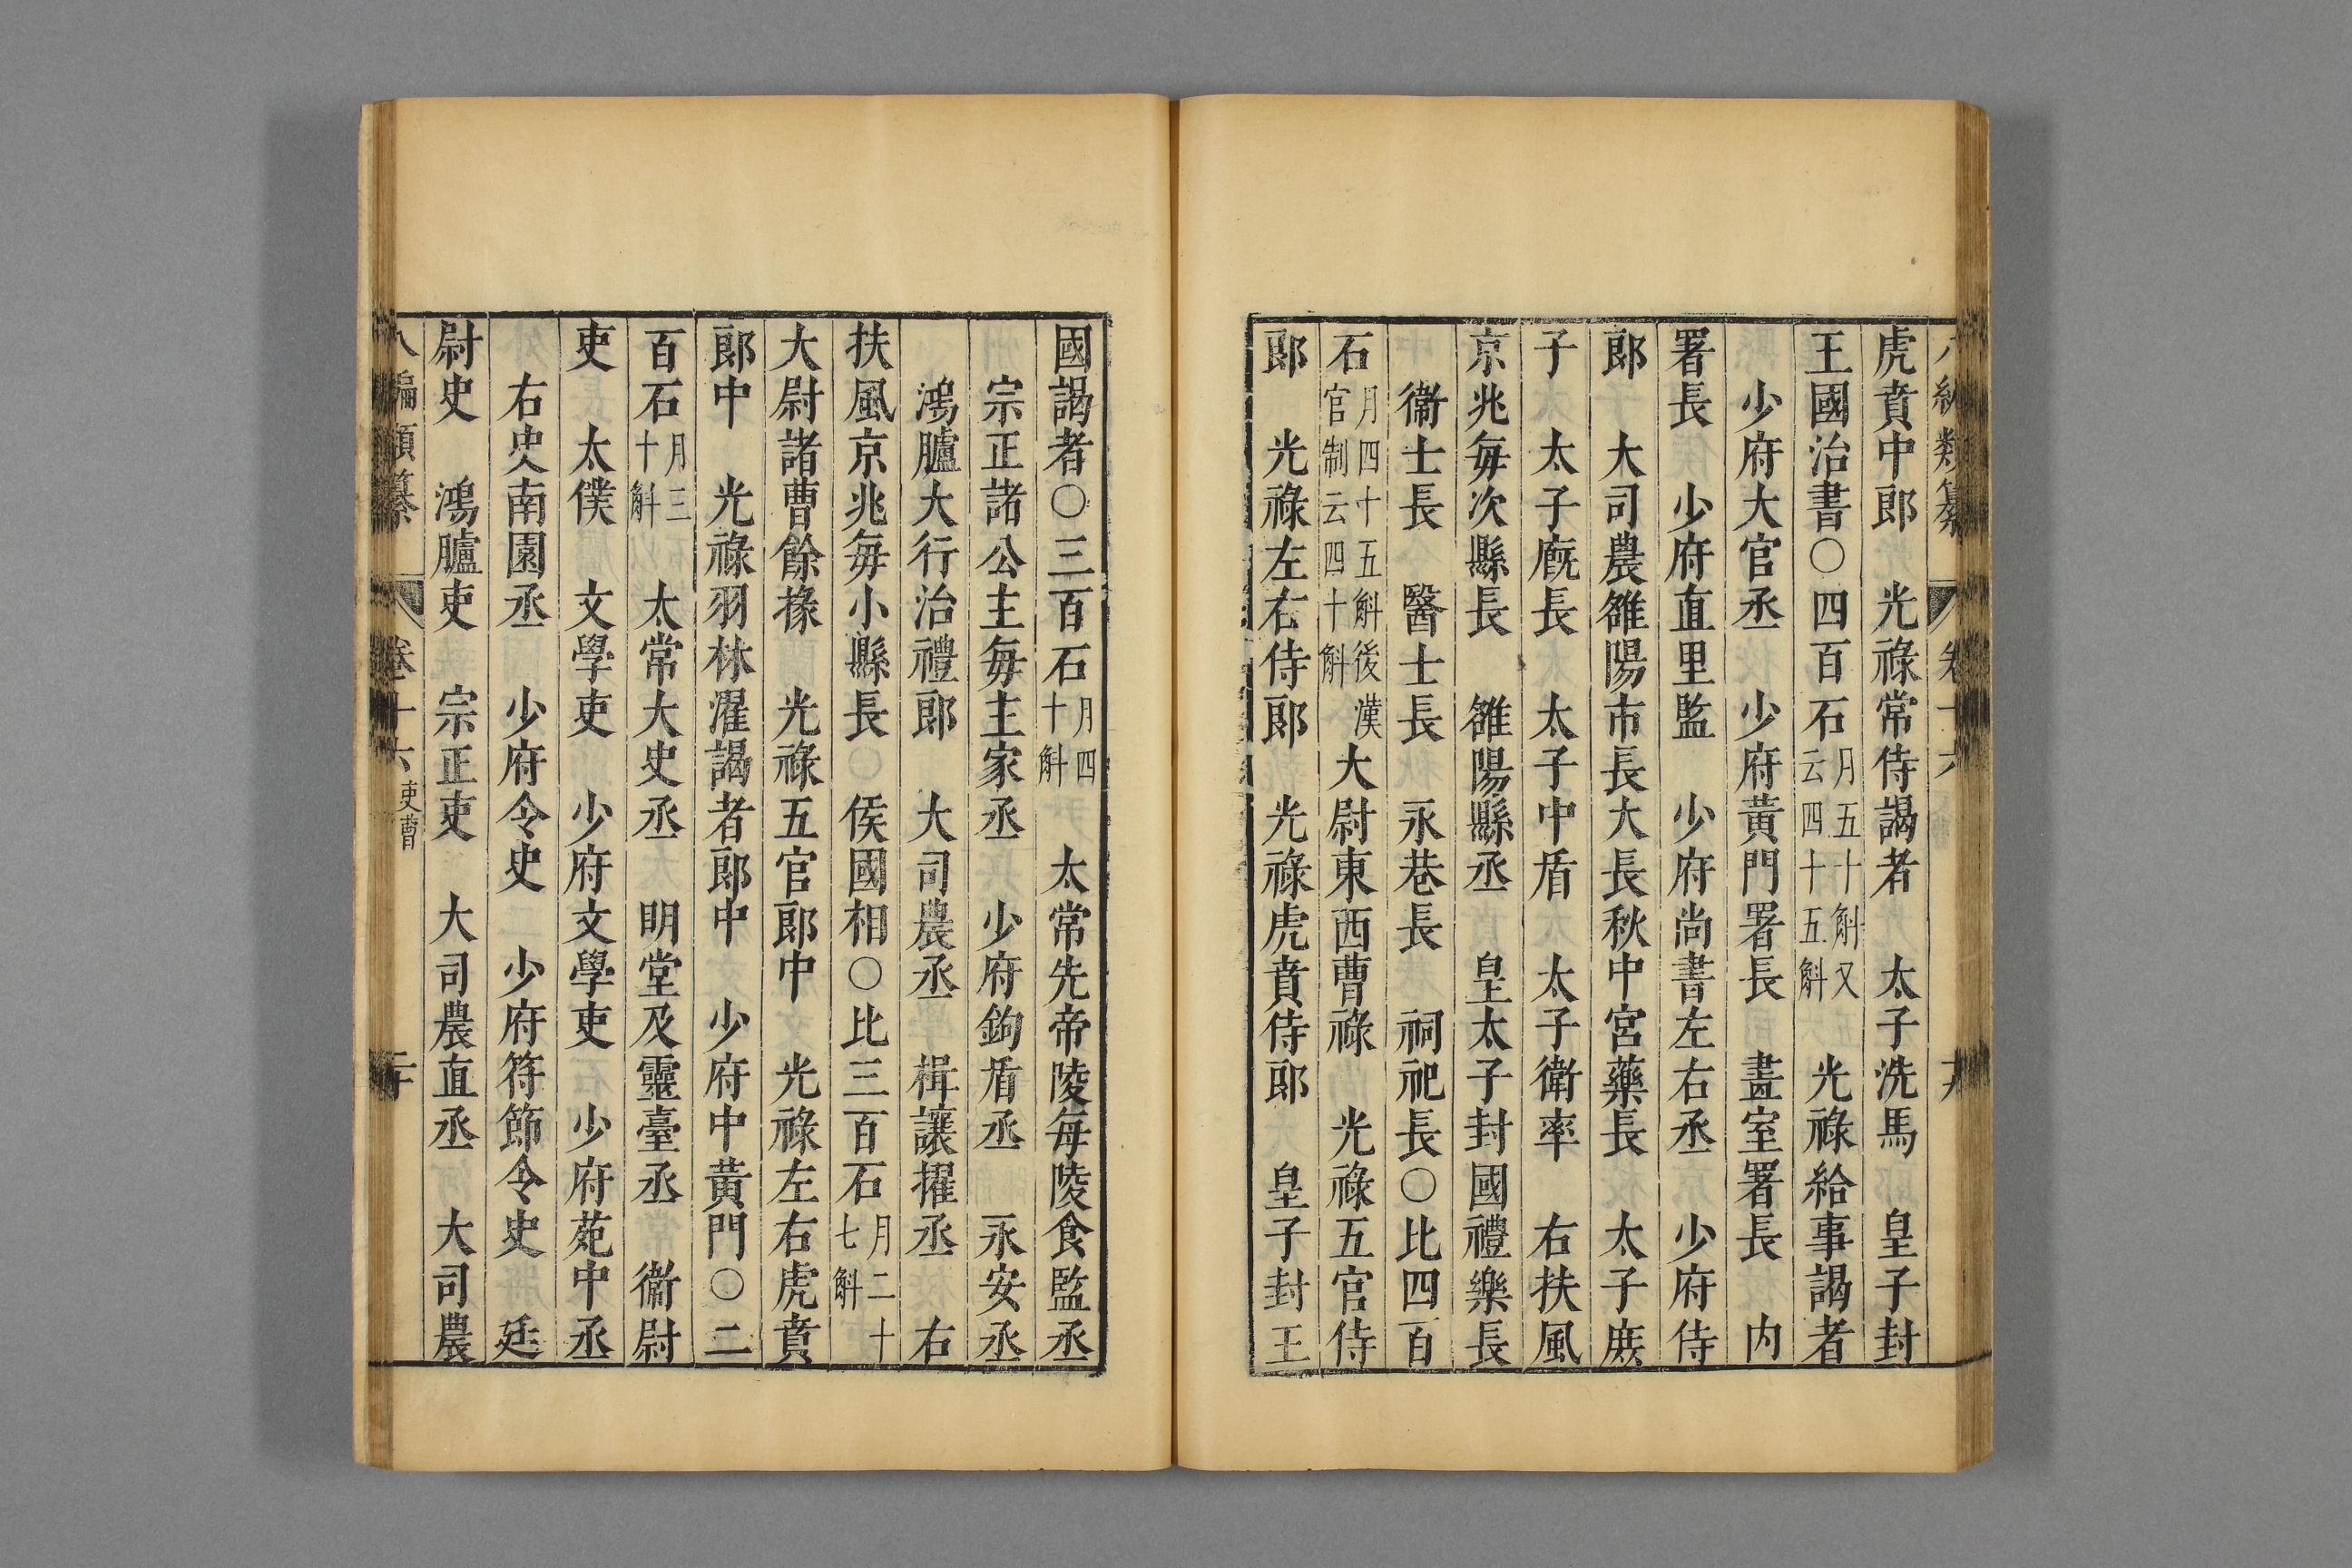 虎賁中郎　光祿常侍謁者　太子洗馬　皇子封
王國治書○四百石月五十斛又云四十五斛　光祿給事謁者
少府大官丞　少府黃門署長　畫室署長　内
署長　少府直里監　少府尚書左右丞　少府侍
郎　大司農雒陽市長大長秋中宮藥長　太子庻
子　太子廐長　太子中盾　太子衛率　右扶風
京兆每次縣長　雒陽縣丞　皇太子封國禮樂長
衞士長　醫士長　永巷長　祠祀長○比四百
石月四十五斛後漢官制云四十斛大尉東西曹祿　光祿五官侍
郎　光祿左右侍郎　光祿虎賁侍郎　皇子封王
國謁者○三百石月四十斛　太常先帝陵每陵食監丞
宗正諸公主每主家丞　少府鉤盾丞　永安丞
鴻臚大行治禮郎　大司農丞　楫讓擢丞　右
扶風京兆每小縣長○侯國相○比三百石月二十七斛
大尉諸曹餘掾　光祿五官郎中　光祿左右虎賁
郎中　光祿羽林濯謁者郎中　少府中黃門○二
百石月三十斛　太常大史丞　明堂及靈臺丞　衞尉
吏　太僕　文學吏　少府文學吏　少府苑中丞
右史南園丞　少府令史　少府符節令史　廷
尉史　鴻臚吏　宗正吏　大司農直丞　大司農
八編類纂　卷十六　吏曹　二十